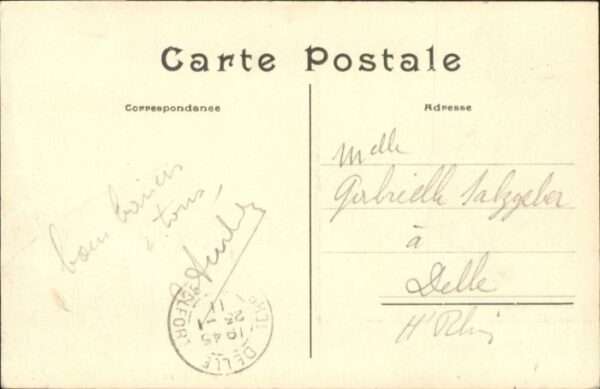 Carte Postale
Correspondance
Adresse
bons baisers
à tous
Melle
Gabrielle Salzgeber
à
Delle
Ht Rhin
DELLE
BELFORT
19 45
23
11